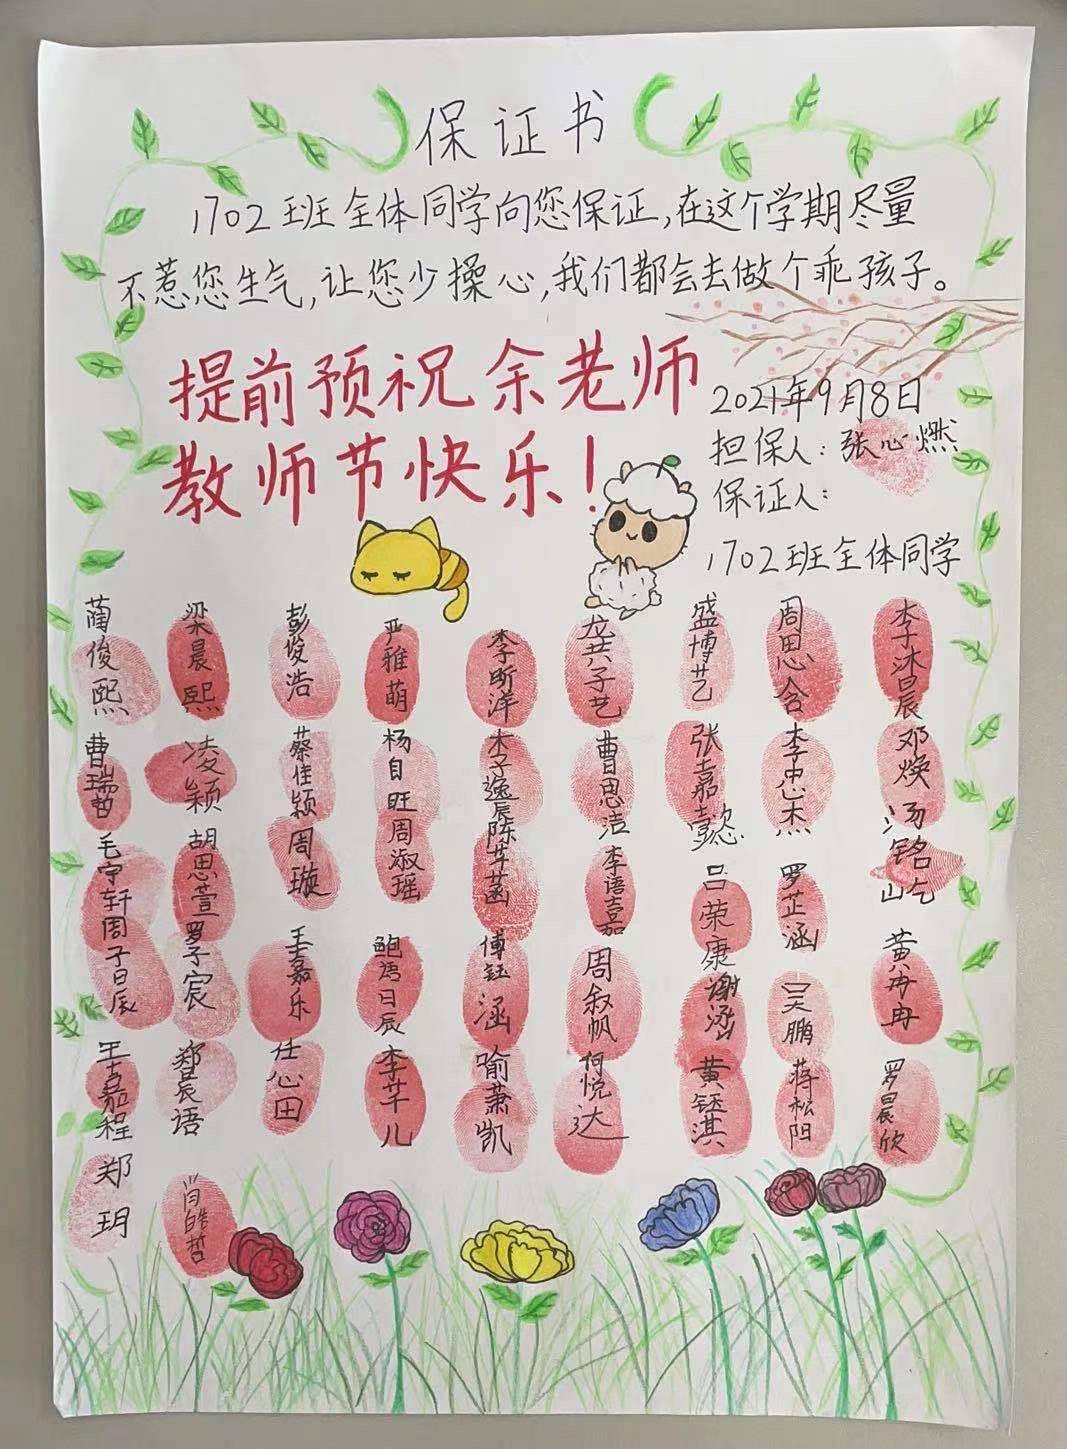 保证书
1702班全体同学向您保证,在这个学期尽量
不惹您生气,让您少操心,我们都会去做个乖孩子。
提前预祝余老师
教师节快乐!
2021年9月8日
担保人:张心燃
保证人:
1702班全体同学
蔺俊熙
梁晨熙
彭俊浩
严雅萌
李昕洋
龙共子艺
盛博艺
周思含
李沐晨
曹瑞哲
凌颖
蔡佳颖
杨自旺
李逸辰
曹思洁
张嘉懿
李忠杰
邓焕
毛宇轩
胡思萱
周璇
周淑瑶
陈芊菡
李语嘉
吕荣康
罗芷涵
汤铭屹
周子晨
罗子宸
王嘉乐
鲍禹晨
傅钰涵
周叙帆
谢涵
吴鹏
黄冉冉
王嘉程
郑辰语
任心田
李芊儿
喻萧凯
何悦达
黄钰淇
蒋松阳
罗晨欣
郑玥
肖皓哲